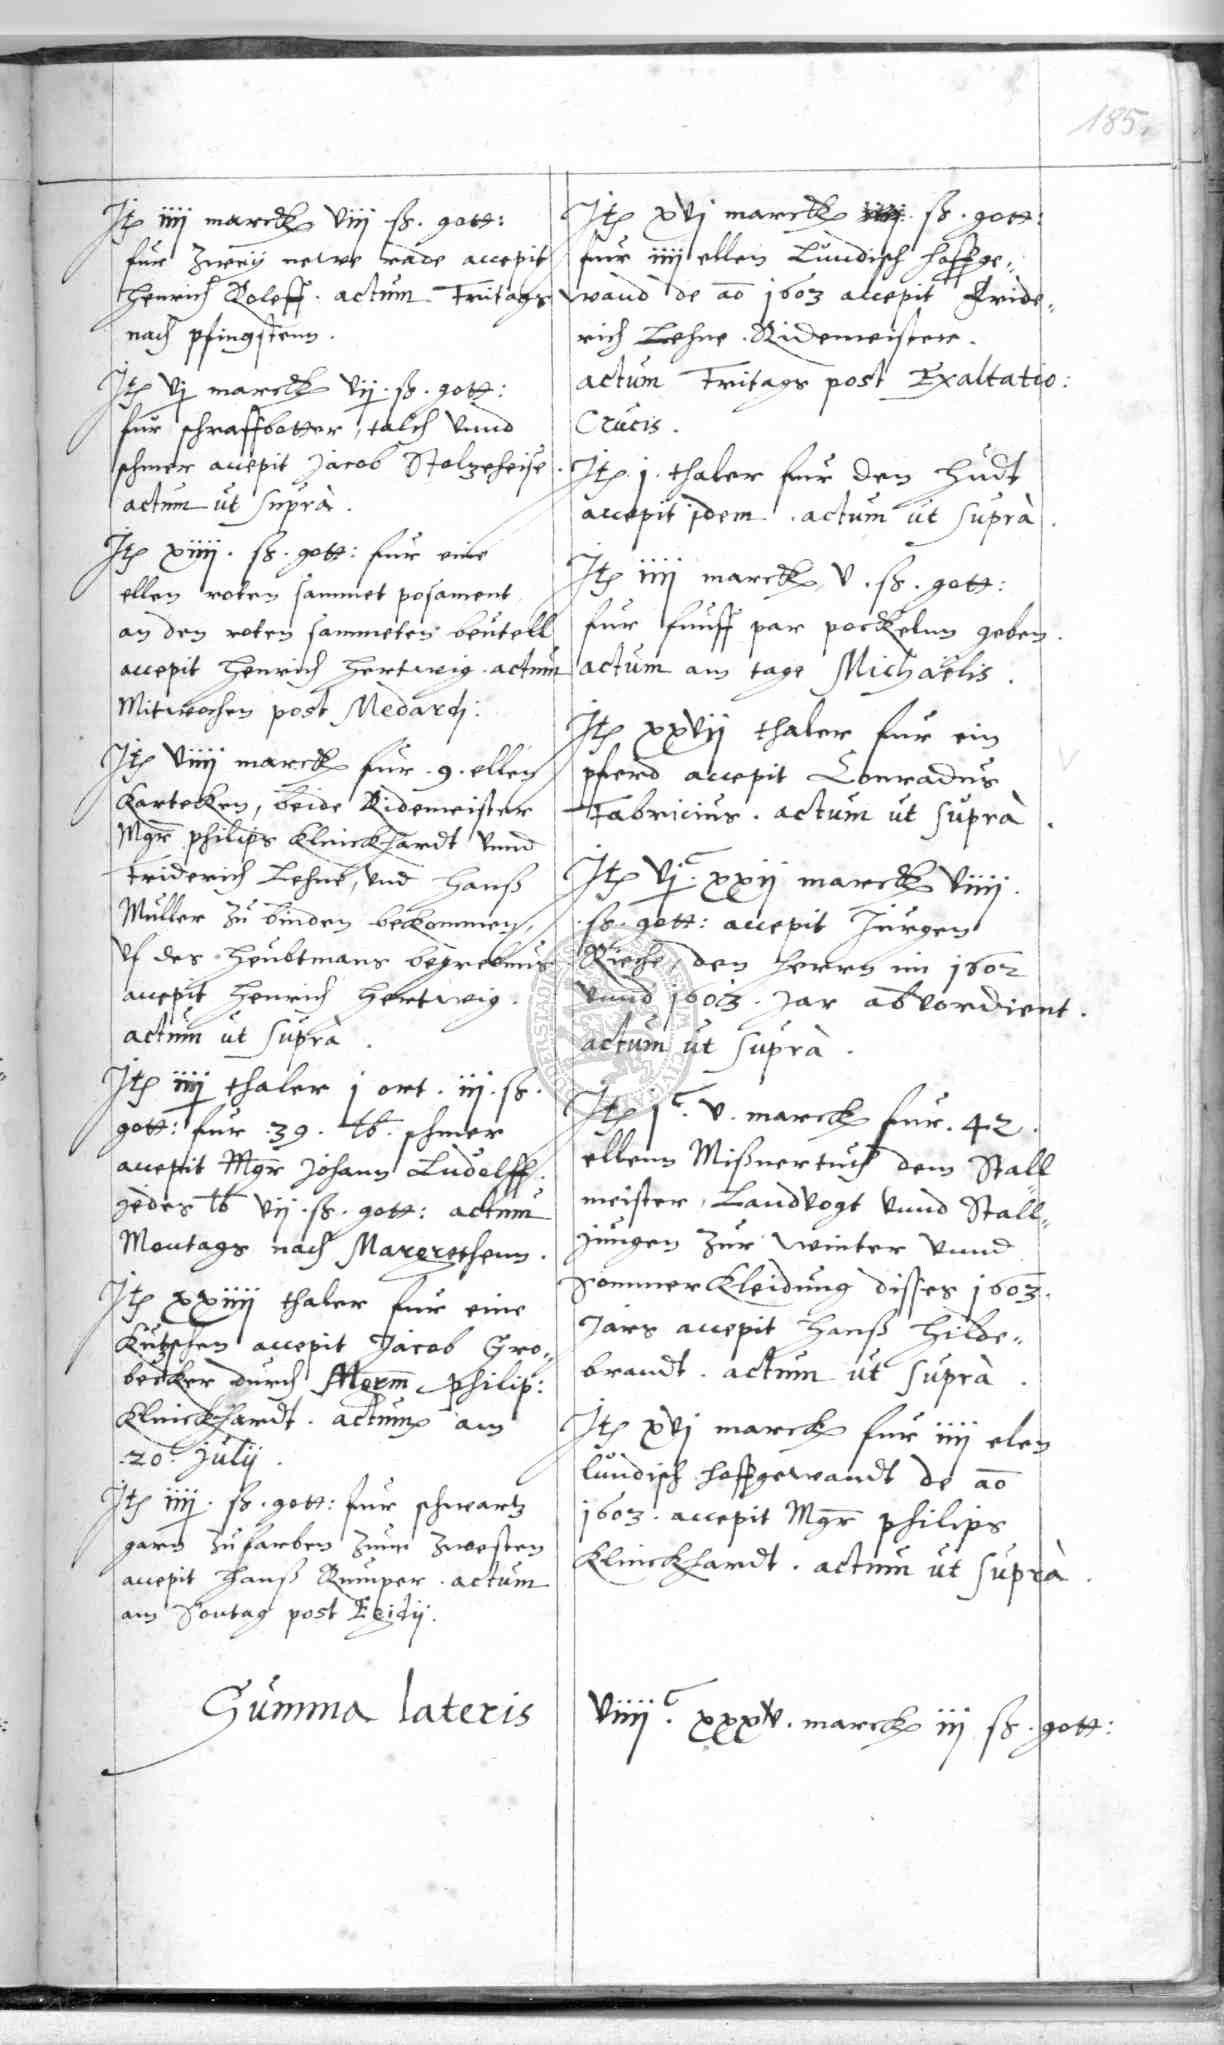 185.
Jtem iiij marck viij ß. gott:
fur zweÿ newe rade accepit
Henrich Roleff. actum Fritags
nach pfingstenn.
Jtem vj marck vij. ß. gott:
fur schraffbotter, talch vnnd
schmer accepit Jacob Stolzeheise.
actum ut suprà.
Jtem xiiij. ß. gott: fur eine
ellen roten sammet posament
an den roten sammeten beutell
accepit Henrich Hertwig. actum
Mitwochen post Medardj:
Jtem viiij marck fur. 9. ellen
Kartecken, beide Ridemeister
Mgr philips Klinckhardt vnnd
Friderich Lehne, vnd Hanß
Muller zu binden bekommen,
vf des Heubtmans begrebnus
accepit Henrich Hertwig.
actum ut suprà.
Jtem iiij thaler j ort. iij. ß.
gott: fur .39. lb. schmer
accepit Mgr Johann Ludolff.
jedes lb vij. ß. gott: actum
Montags nach Margrethenn.
Jtem xxiiij thaler fur eine
Kutzschen accepit Jacob Gro„
becker durch Mgrm philip:
Klinckhardt. actum am
.20. Julij.
Jtem iiij. ß. gott: fur schwartz
garn zu farben zum zwesten
accepit Hanß Rumper. actum
am Sontag post Egidij.
Jtem xvj marck ß. gott:
fur iiij ellen Lundisch hoffge„
wand de ao 1603 accepit Fride„
rich Lehne. Ridemeister.
actum Fritags post Exaltatio:
Crucis.
Jtem. j. thaler fur den hudt
accepit idem. actum ut suprà.
Jtem iiij marck v. ß. gott:
fur funff par pockelnn geben.
actum am tage Michaëlis.
Jtem xxvij thaler fur ein
pferd accepit Conradus
Fabricius. actum ut suprà.
Jtem vjc. xxij marck viiij.
.ß. gott: accepit Jurgen
Rieche, den Herrn im 1602
vnnd 1603. Jar abvordient.
actum ut suprà.
Jtem jc. v. marck fur. 42.
ellenn Mißnertuch dem Stall„
meister, Landvogt vnnd Stall„
jungen zur winter vnnd
Sommer Kleidung disses 1603.
Jars accepit Hanß Hilde„
brandt. actum ut suprà.
Jtem xvj marck fur iiij elen
lundisch hoffgewandt de ao
1603. accepit Mgr philips
Klinckhardt. actum ut suprà.
Summa lateris viiijc. xxxv. marck iij ß. gott: